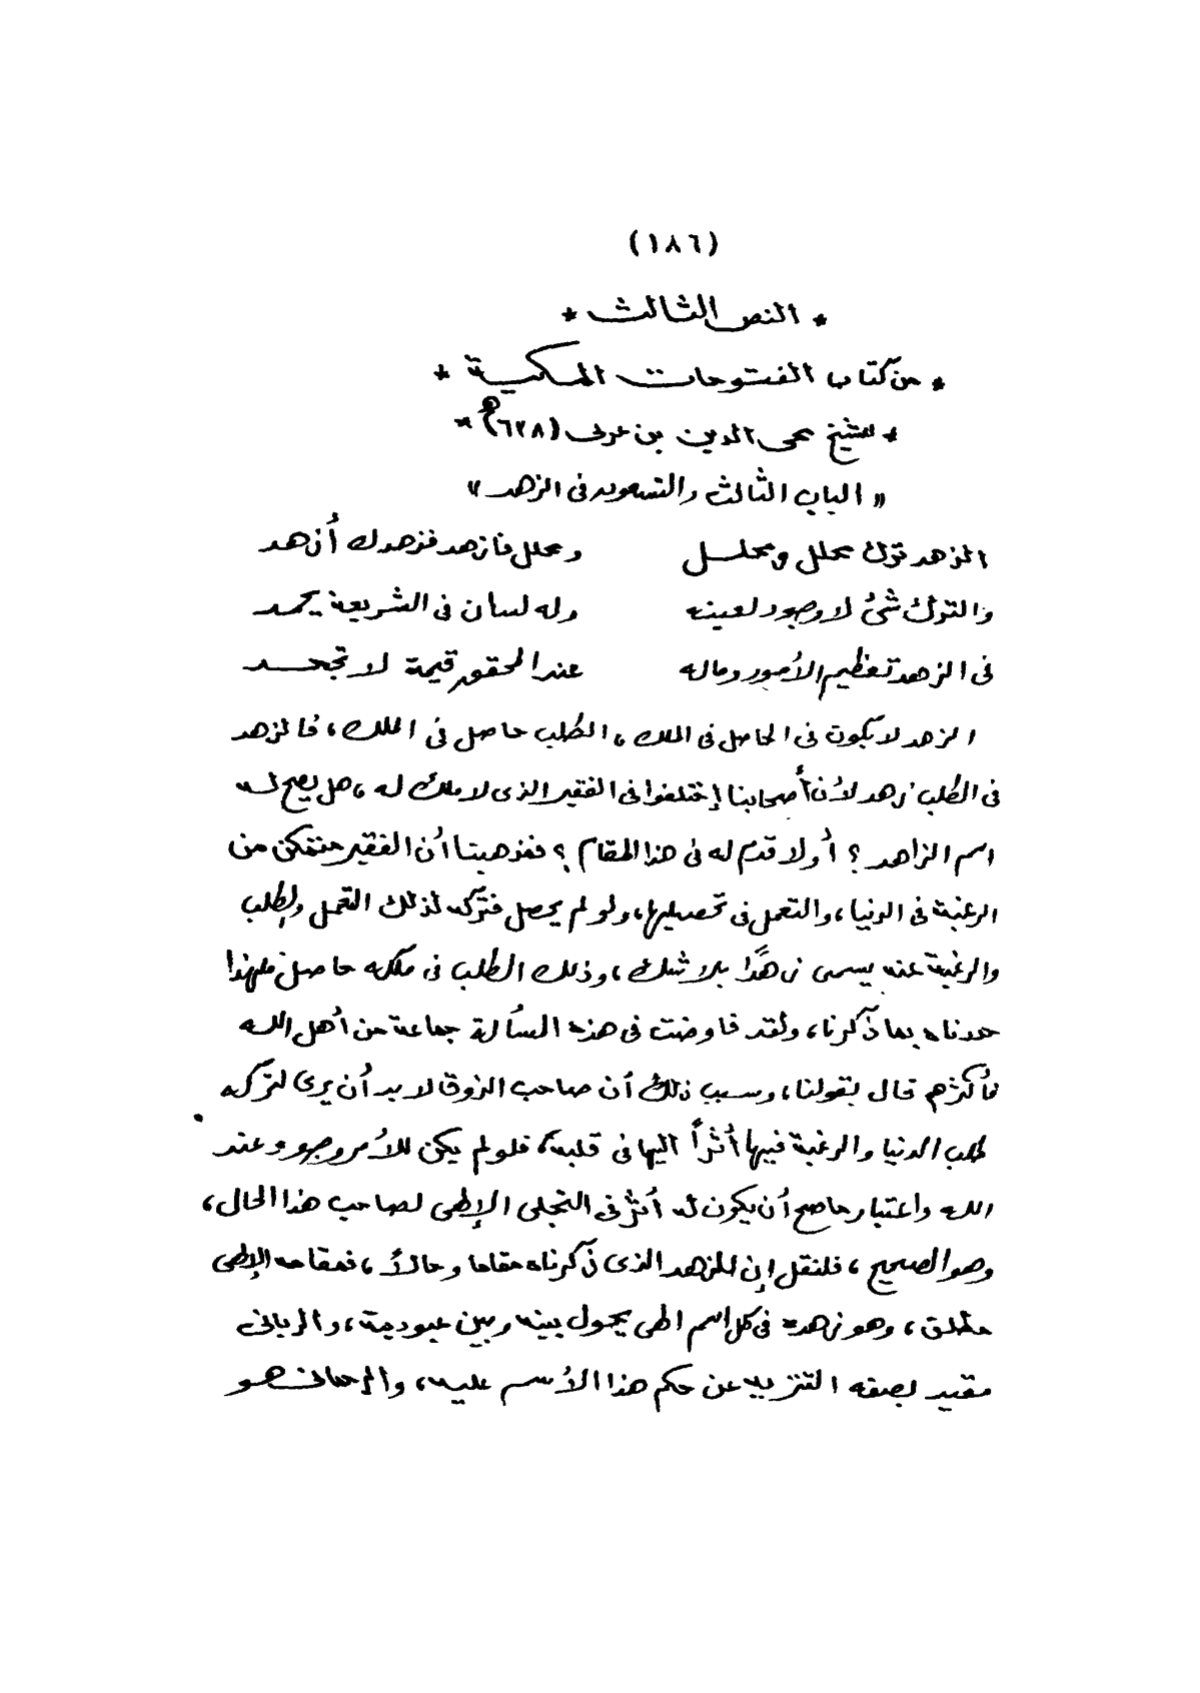 (١٨٦)
* النص الثالث *
* من كتاب الفتوحات المكية *
* للشيخ محى الدين بن عربى (٦٣٨ه) *
« الباب الثالث والتسعون فى الزهد »
الزهد ترك محلل ومحلل ومحلل فازهد فزهدك أزهد
والترك شئ لا وجود لعينه وله لسان فى الشريعة يحمد
فى الزهد تعظيم الأمور وماله عند المحقق قيمة لا تجحد
الزهد لا يكون فى الحاصل فى الملك ، الطلب حاصل فى الملك ، فالزهد
فى الطلب زهد لأن أصحابنا إختلفوا فى الفقير الذى لا ملك له ، هل يصح له
اسم الزاهد ؟ أو لا قدم له فى هذا المقام ؟ فمذهبنا أن الفقير متمكن من
الرغبة فى الدنيا ، والتعمل فى تحصيلها ، ولو لم يحصل فتركه لذلك التعمل والطلب
والرغبة عنه يسمى زهدًا بلا شك ، وذلك الطلب فى ملكه حاصل فلهذا
حددناه بما ذكرنا ، ولقد فاوضت فى هذه المسألة جماعة من أهل الله
فأكثرهم قال بقولنا ، وسبب ذلك أن صاحب الذوق لا بد أن يرى لتركه
طلب الدنيا والرغبة فيها أثراً اليها فى قلبه ، فلو لم يكن للأمر وجود عند
الله واعتبار ما صح أن يكون له أثر فى التجلى الإلهى لصاحب هذا الحال ،
وهو الصحيح ، فلنقل إن للزهد الذى ذكرناه مقاما وحالاً ، فمقامه الإلهى
مطلق ، وهو زهده فى كل اسم الهى يحول بينه وبين عبوديته ، والربانى
مقيد بصفه التنزيه عن حكم هذا الأسم عليه ، والرحمانى هو